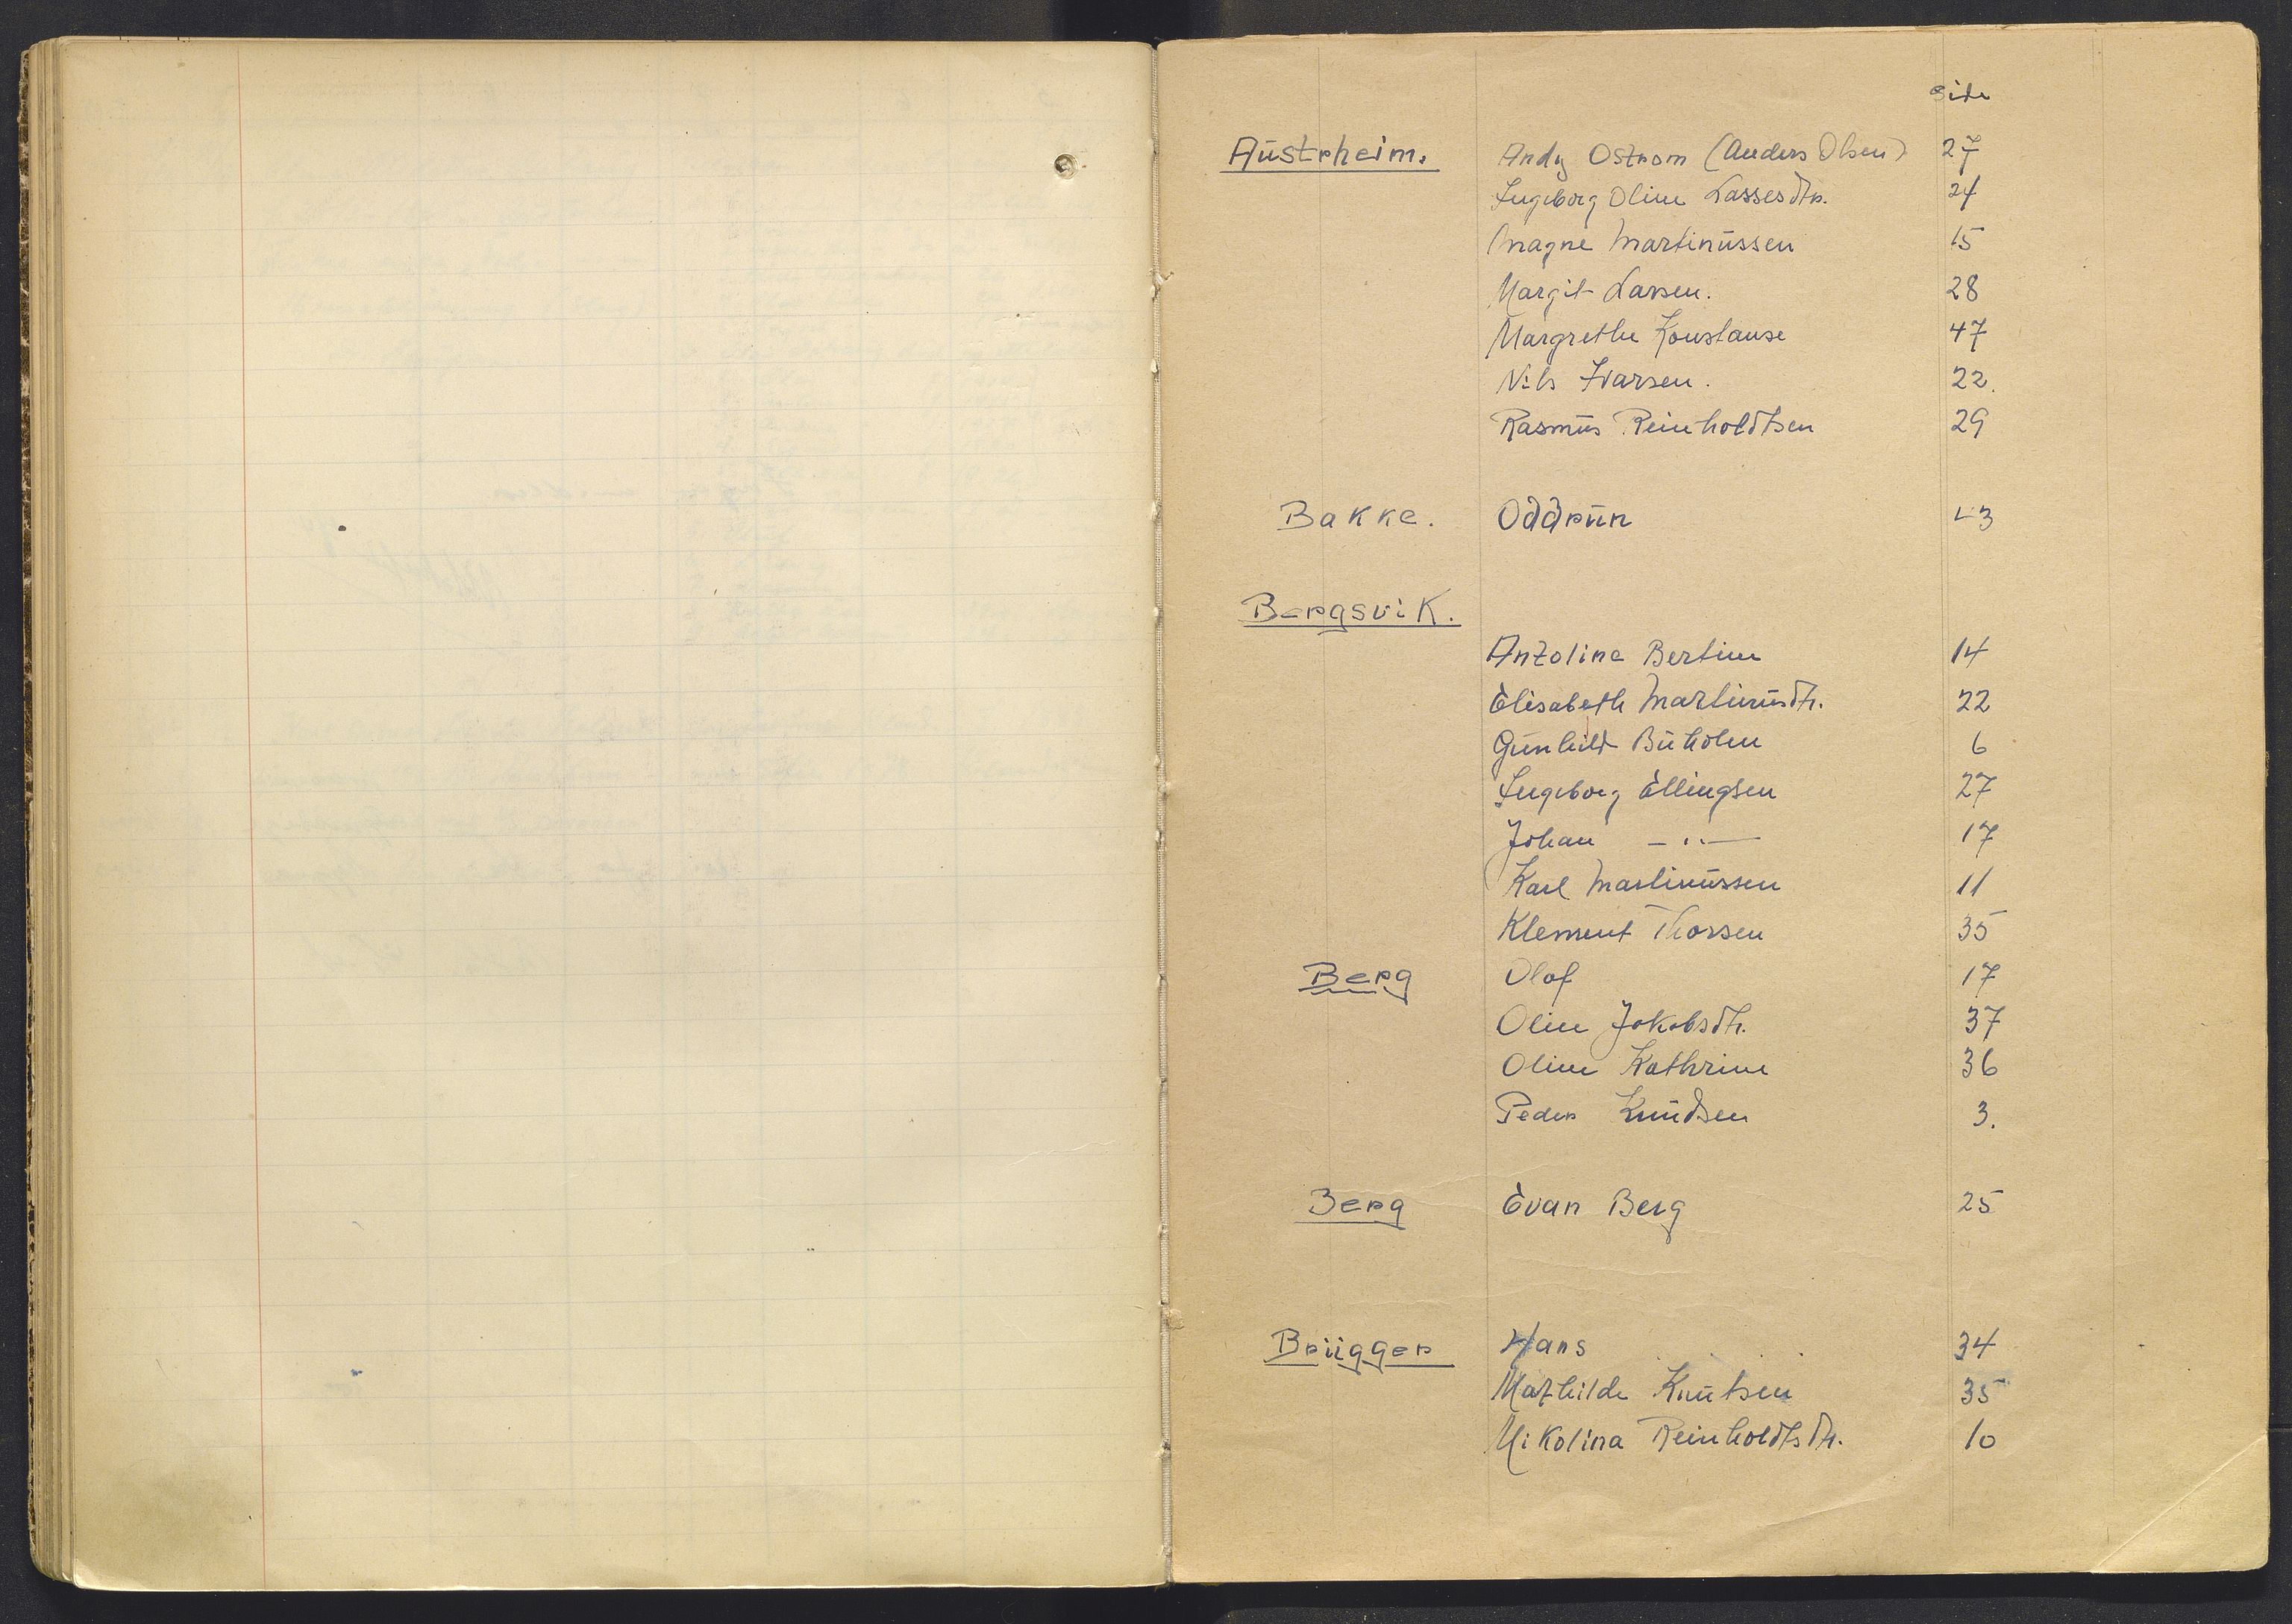 Side
Austrheim. Andy Ostrom (Anders Olsen) 27
Ingeborg Oline Lassesdtr. 24
Magne Martinussen 15
Margit Larsen. 28
Margrethe Konstanse 47
Nils Ivarsen. 22.
Rasmus Reinholdtsen 29
Bakke. Oddrun 43
Bergsvik.
Antolina Bertine 14
Elisabeth Martinusdtr. 22
Gunhild Buholen 6
Ingeborg Ellingsen 27
Johan — " — 17
Karl Martinussen 11
Klement Thorsen 35
Berg Olof 17
Oline Jakobsdtr. 37
Oline Kathrine 36
Peder Knudsen 3.
Berg Evan Berg 25
Brügger Hans 34
Mathilde Knutsen 35
Nikolina Reinholdtsdtr. 10